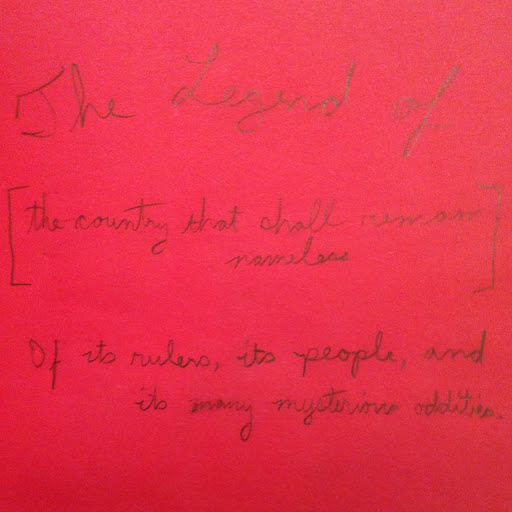 The Legend of
[the country that shall remain
nameless]
Of its rulers, its people, and
its many mysterious oddities.